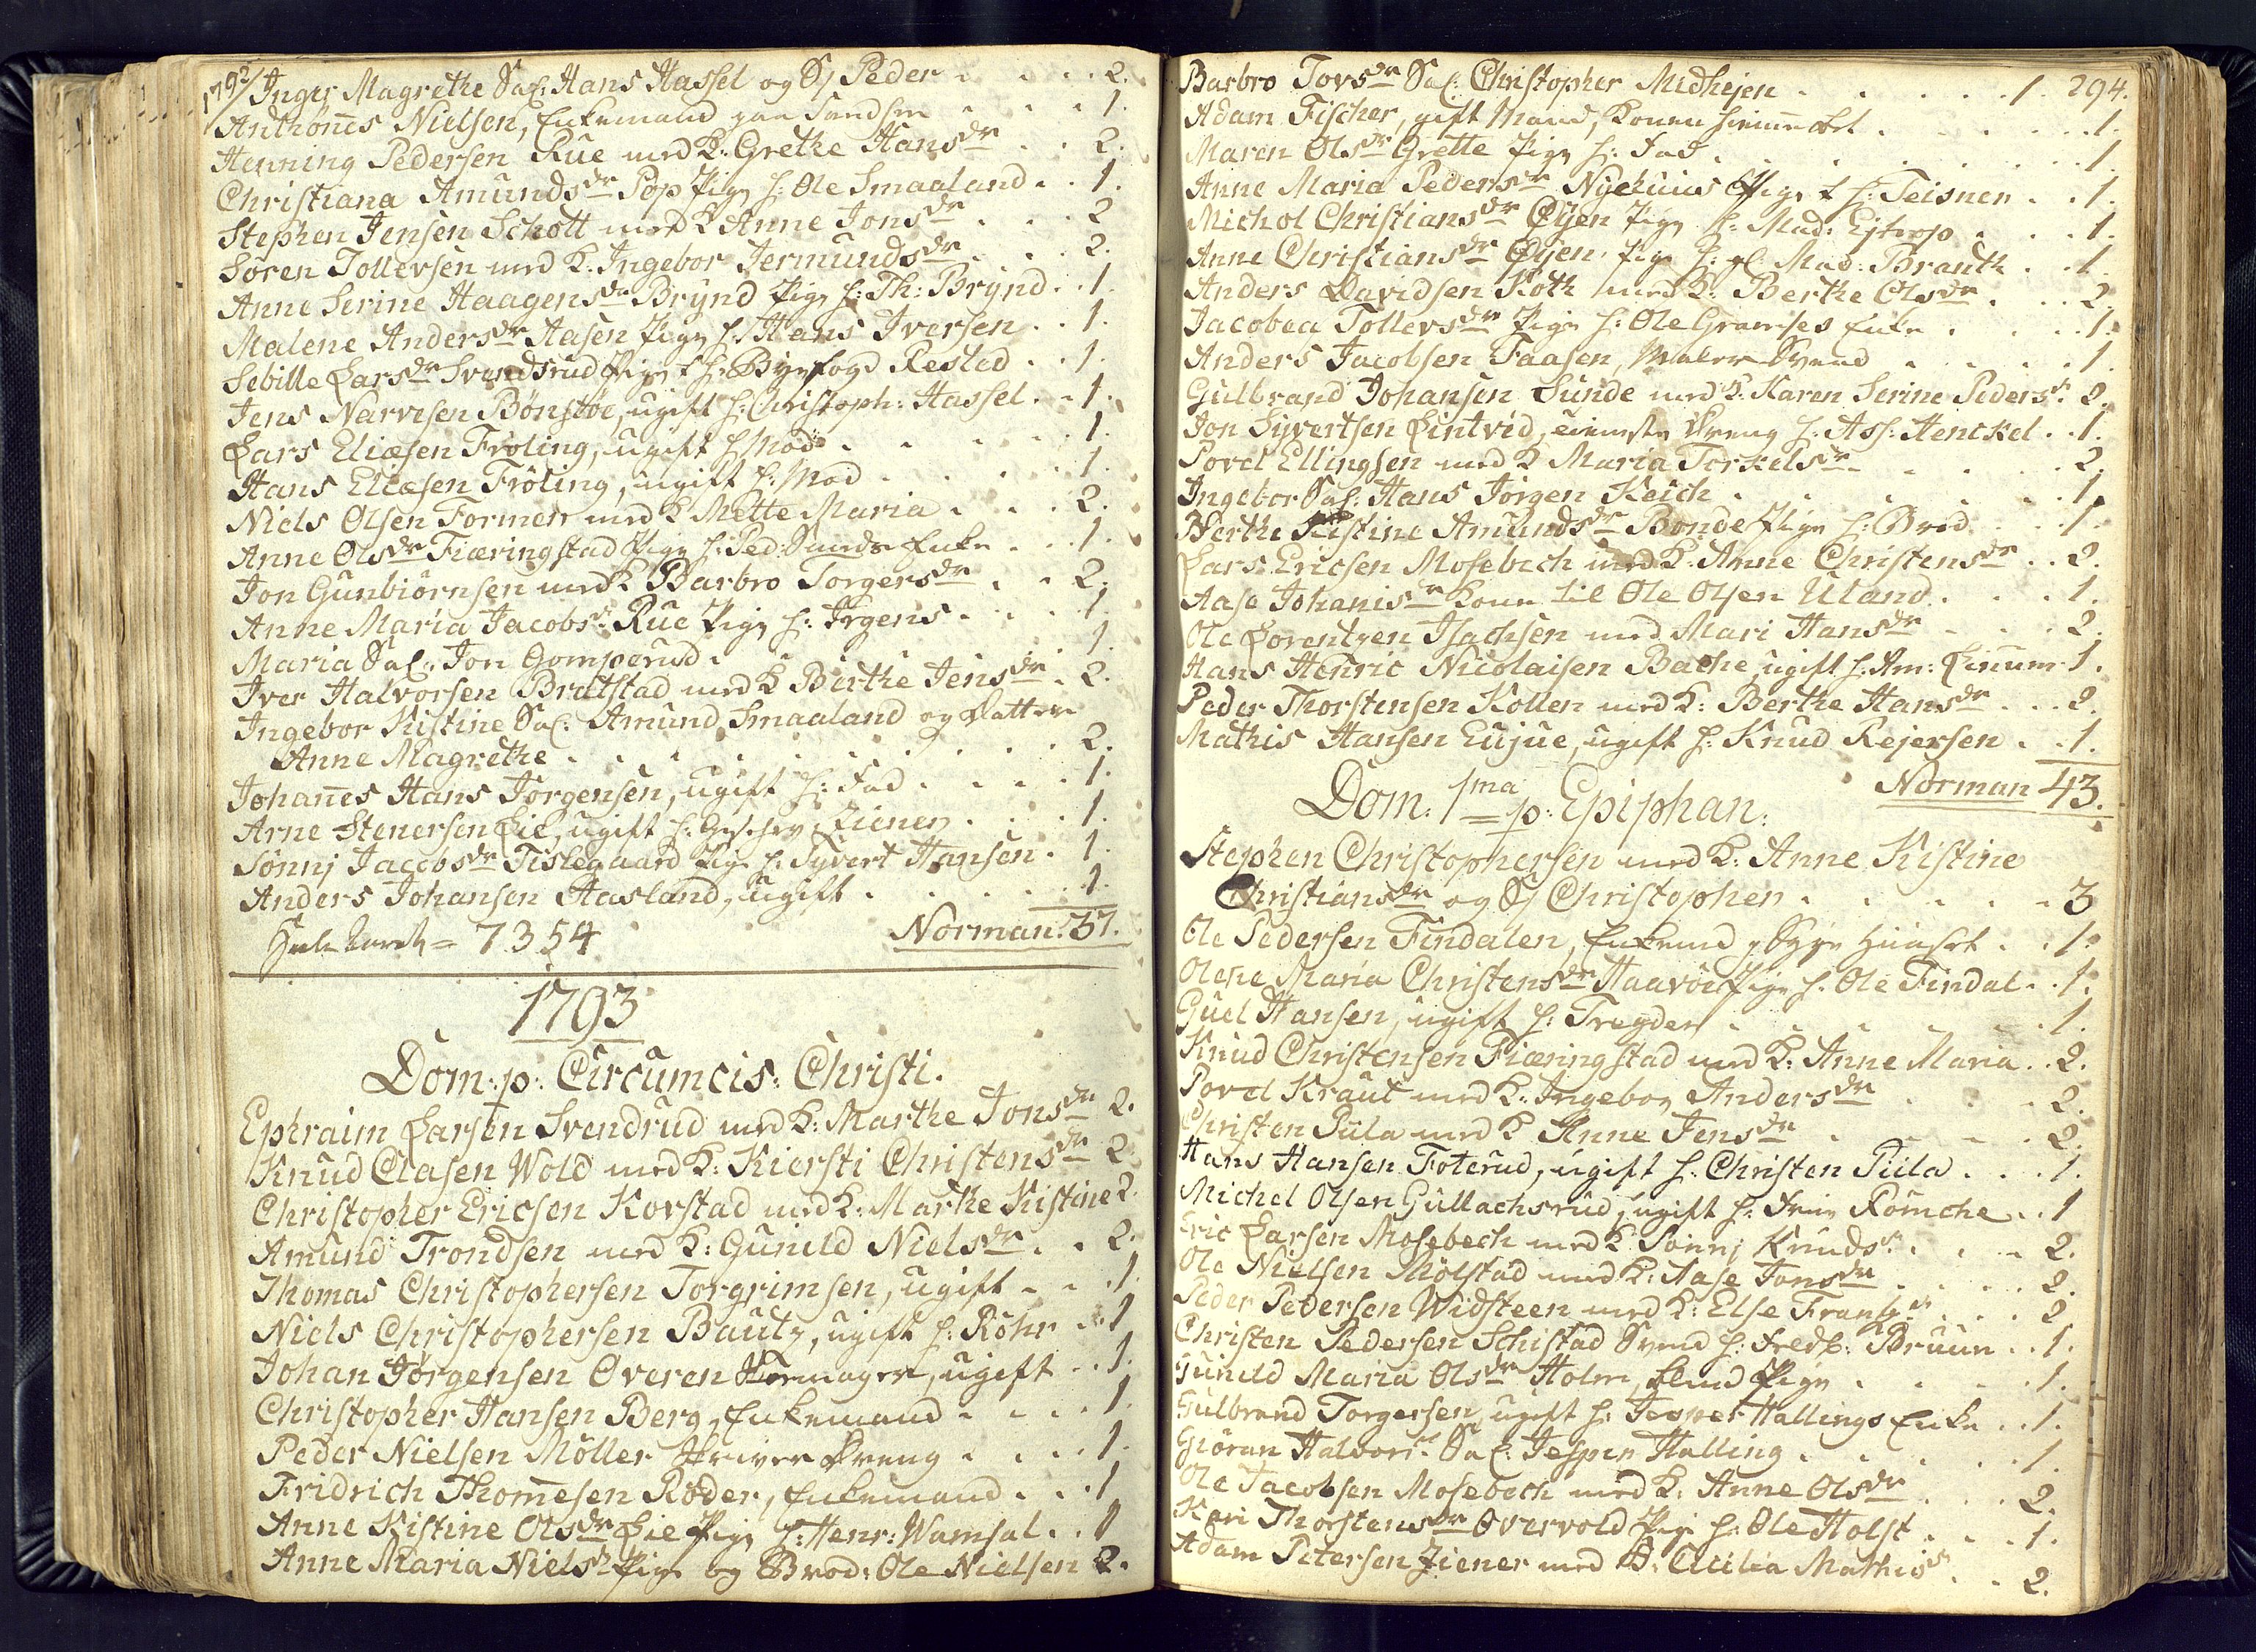 1792/ Inger Magrethe Sal: Hans Hassel og S. Peder . . . 2.
Anthones Nielsen, Enkemand paa Sandsen . . . 1.
Henning Pedersen Rue med K: Grethe Hansdr . . 2.
Christiana Amundsdr Pop Pige h: Ole Smaaland . . 1.
Stephen Jensen Schott med K Anne Jonsdr . . . 2
Sören Tollersen med K. Ingebor Jermundsdr . . . 2.
Anne Serine Haagensdr Brynd Pige h: Th: Brÿnd . . 1.
Malene Andersdr Aasen Pige h: Hans Iversen . . 1.
Sebille Larsdr Svendsrud Pige h: Byefogd Rested . . 1.
Jens Narvesen Bönstöe, ugift h: Christoph: Hassel . . 1.
Lars Eliæsen Fröling, ugift h Mod . . . 1.
Hans Eliæsen Fröling, ugift h: Mod . . . 1.
Niels Olsen Formen med K Mette Maria . . . 2.
Anne Olsdr Fiæringstad Pige h: Ped: Sunds Enke . . . 1.
Jon Gunbiörnsen med K Barbro Torgersdr . . 2.
Anne Maria Jacobsdr Rue Pige h: Irgens . . . 1.
Maria Sal: Jon Gomperud . . . 1.
Iver Halvorsen Bratstad med K Birthe Jensdr . 2.
Ingebor Kistine Sal: Amund Smaaland og Datter
Anne Magrethe . . . 2.
Johanes Hans Jörgensen, ugift h: Fad . . . 1.
Arne Stenersen Lie, ugift h: Ziener . . . 1.
Sönnj Jacobsdr Tislegaard Pige h: Syvert Hansen . 1.
Anders Johansen Aasland, ugift . . . 1.
Norman 37.
= 7354
1793
Dom: p: Circumcis: Christi.
Ephraim Larsen Svendrud med K: Marthe Jonsdr 2.
Knud Clasen Wold med K: Kiersti Christensdr 2
Christopher Ericsen Korstad med K: Marthe Kistine 2.
Amund Trondsen med K: Gunild Nielsdr . . 2.
Thomas Christophersen Torgrimsen, ugift . . 1.
Niels Christophersen Bautz, ugift h: Röhr . . 1
Johan Jörgensen Overen Skomager, ugift . . 1.
Christopher Hansen Berg, Enkemand . . . 1.
Peder Nielsen Möller Skriver Dreng . . . 1.
Fridrich Thomesen Röder, Enkemand . . . 1
Anne Kistine Olsdr Lie Pige h: Henr: Wamsal . . 1
Anne Maria Nielsdr Pige og Brod: Ole Nielsen 2.
Barbro Torsdr Sal: Christopher Midhejen . . . 1. 294.
Adam Fischer, gift Mand, Konen . . . 1.
Maren Olsdr Grette Pige h: Fad . . . 1.
Anne Maria Pedersdr Nyehuus Pige h: Teisner . . 1.
Michol Christiansdr Öyen Pige h: Mad: Ejtorp . . . 1.
Anne Christiansdr Öyen Pige h: gl: Mad: Brauth . . 1.
Anders Davidsen Koth med K: Berthe Olsdr . . . 2.
Jacobea Tollersdr Pige h: Ole Gramses Enke . . . 1.
Anders Jacobsen Faasen, Maler Svend . . . 1.
Gulbrand Johansen Sunde med K: Karen Serine Pedersdr 2.
Jon Syvertsen Lintvid, Dreng h: Ass: Henckel . . 1.
Povel Ellingsen med K Maria Torkelsdr . . . 2.
Ingebor Sal: Hans Jörgen Keich . . . 1.
Berthe Kistine Amundsdr Bonde Pige h: Brod . . . 1.
Lars Ericsen Mosebech med K: Anne Christensdr . . 2.
Aase Johanisdr Kone til Ole Olsen Uland . . . 1.
Ole Lorentzen Isachsen med Mari Hansdr . . . 2.
Hans Henric Nicolaisen Bache, ugift h: Am: Linum 1.
Peder Thorstensen Kollen med K: Berthe Hansdr . . . 2.
Mathis Hansen Eujue, ugift h: Knud Rejersen . . 1.
Norman 43.
Dom: 1ma p: Epiphan:
Stephen Christophersen med K: Anne Kistine
Christiansdr og S. Christopher . . . 3
Ole Pedersen Findalen, Enkemd . . 1.
Olene Maria Christensdr Haavöe Pige h: Ole Findal . . 1.
Guel Hansen, ugift h: Tregder . . . 1.
Knud Christensen Fiæringstad med K: Anne Maria . . 2.
Povel Kraut med K: Ingebor Andersdr . . . 2.
Christen Püla med K Anne Jensdr . . . 2.
Hans Hansen Foterud, ugift h: Christen Püla . . . 1.
Michel Olsen Gullachsrud, ugift h: Römche . . 1
Eric Larsen Mosebech med K Sönnj Knudsdr . . . 2.
Ole Nielsen Mölstad med K: Aase Jonsdr . . . 2.
Peder Pedersen Widsteen med K: Else Fransdr . . . 2
Christen Pedersen Schistad Svend h: Fredr: Bruun . . 1.
Gunild Maria Olsdr Holm, blind Pige . . . 1.
Gulbrand Torgersen, ugift h: Jesper Hallings Enke . . 1.
Giöran Halvorsdr Sal: Jesper Halling . . . 1.
Ole Jacobsen Mosebech med K: Anne Olsdr . . . 2.
Kari Thorstensdr Overvold Pige h: Ole Holst . . . 1.
Adam Petersen Ziener med K: Cicilia Mathisdr . . 2.